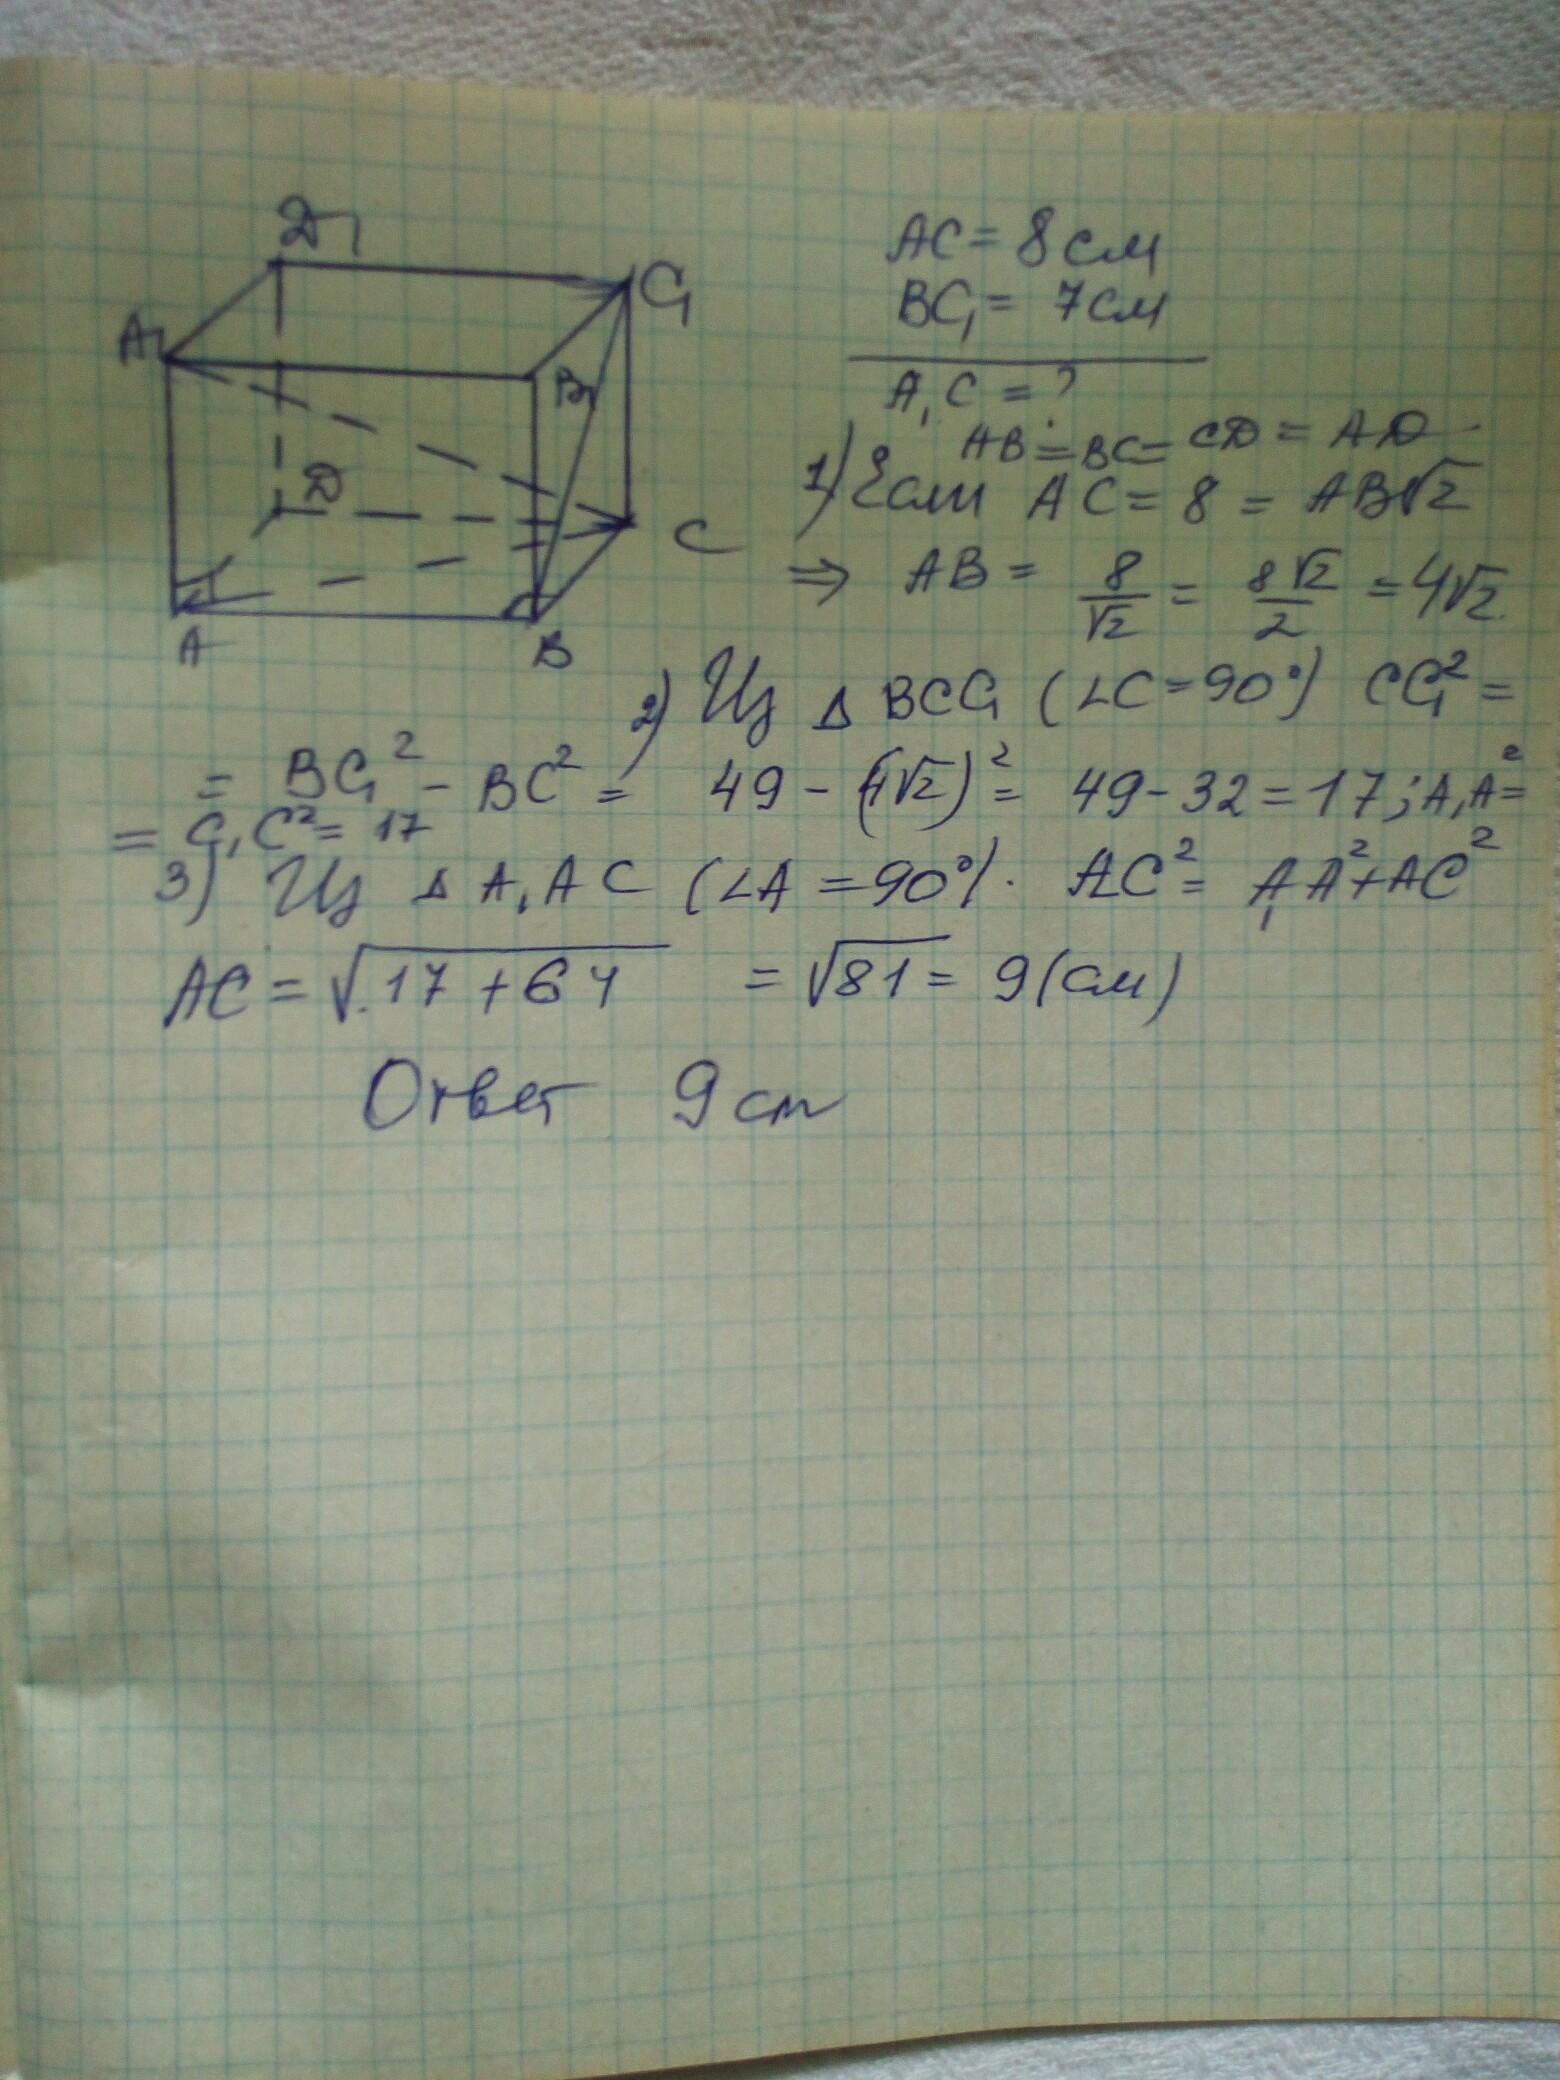 D₁
C₁
A₁
B₁
D
C
A
B
AC = 8 см
BC₁ = 7 см
A₁C = ?
AB = BC = CD = AD
1) Если AC = 8 = AB√2
⇒ AB = 8/√2 = 8√2/2 = 4√2
2) Из Δ BCC₁ (∠C = 90°) CC₁² =
= BC₁² - BC² = 49 - (4√2)² = 49 - 32 = 17; A₁A² =
= C₁C² = 17
3) Из Δ A₁AC (∠A = 90°). AC² = A₁A² + AC²
AC = √17 + 64 = √81 = 9 (см)
Ответ 9 см